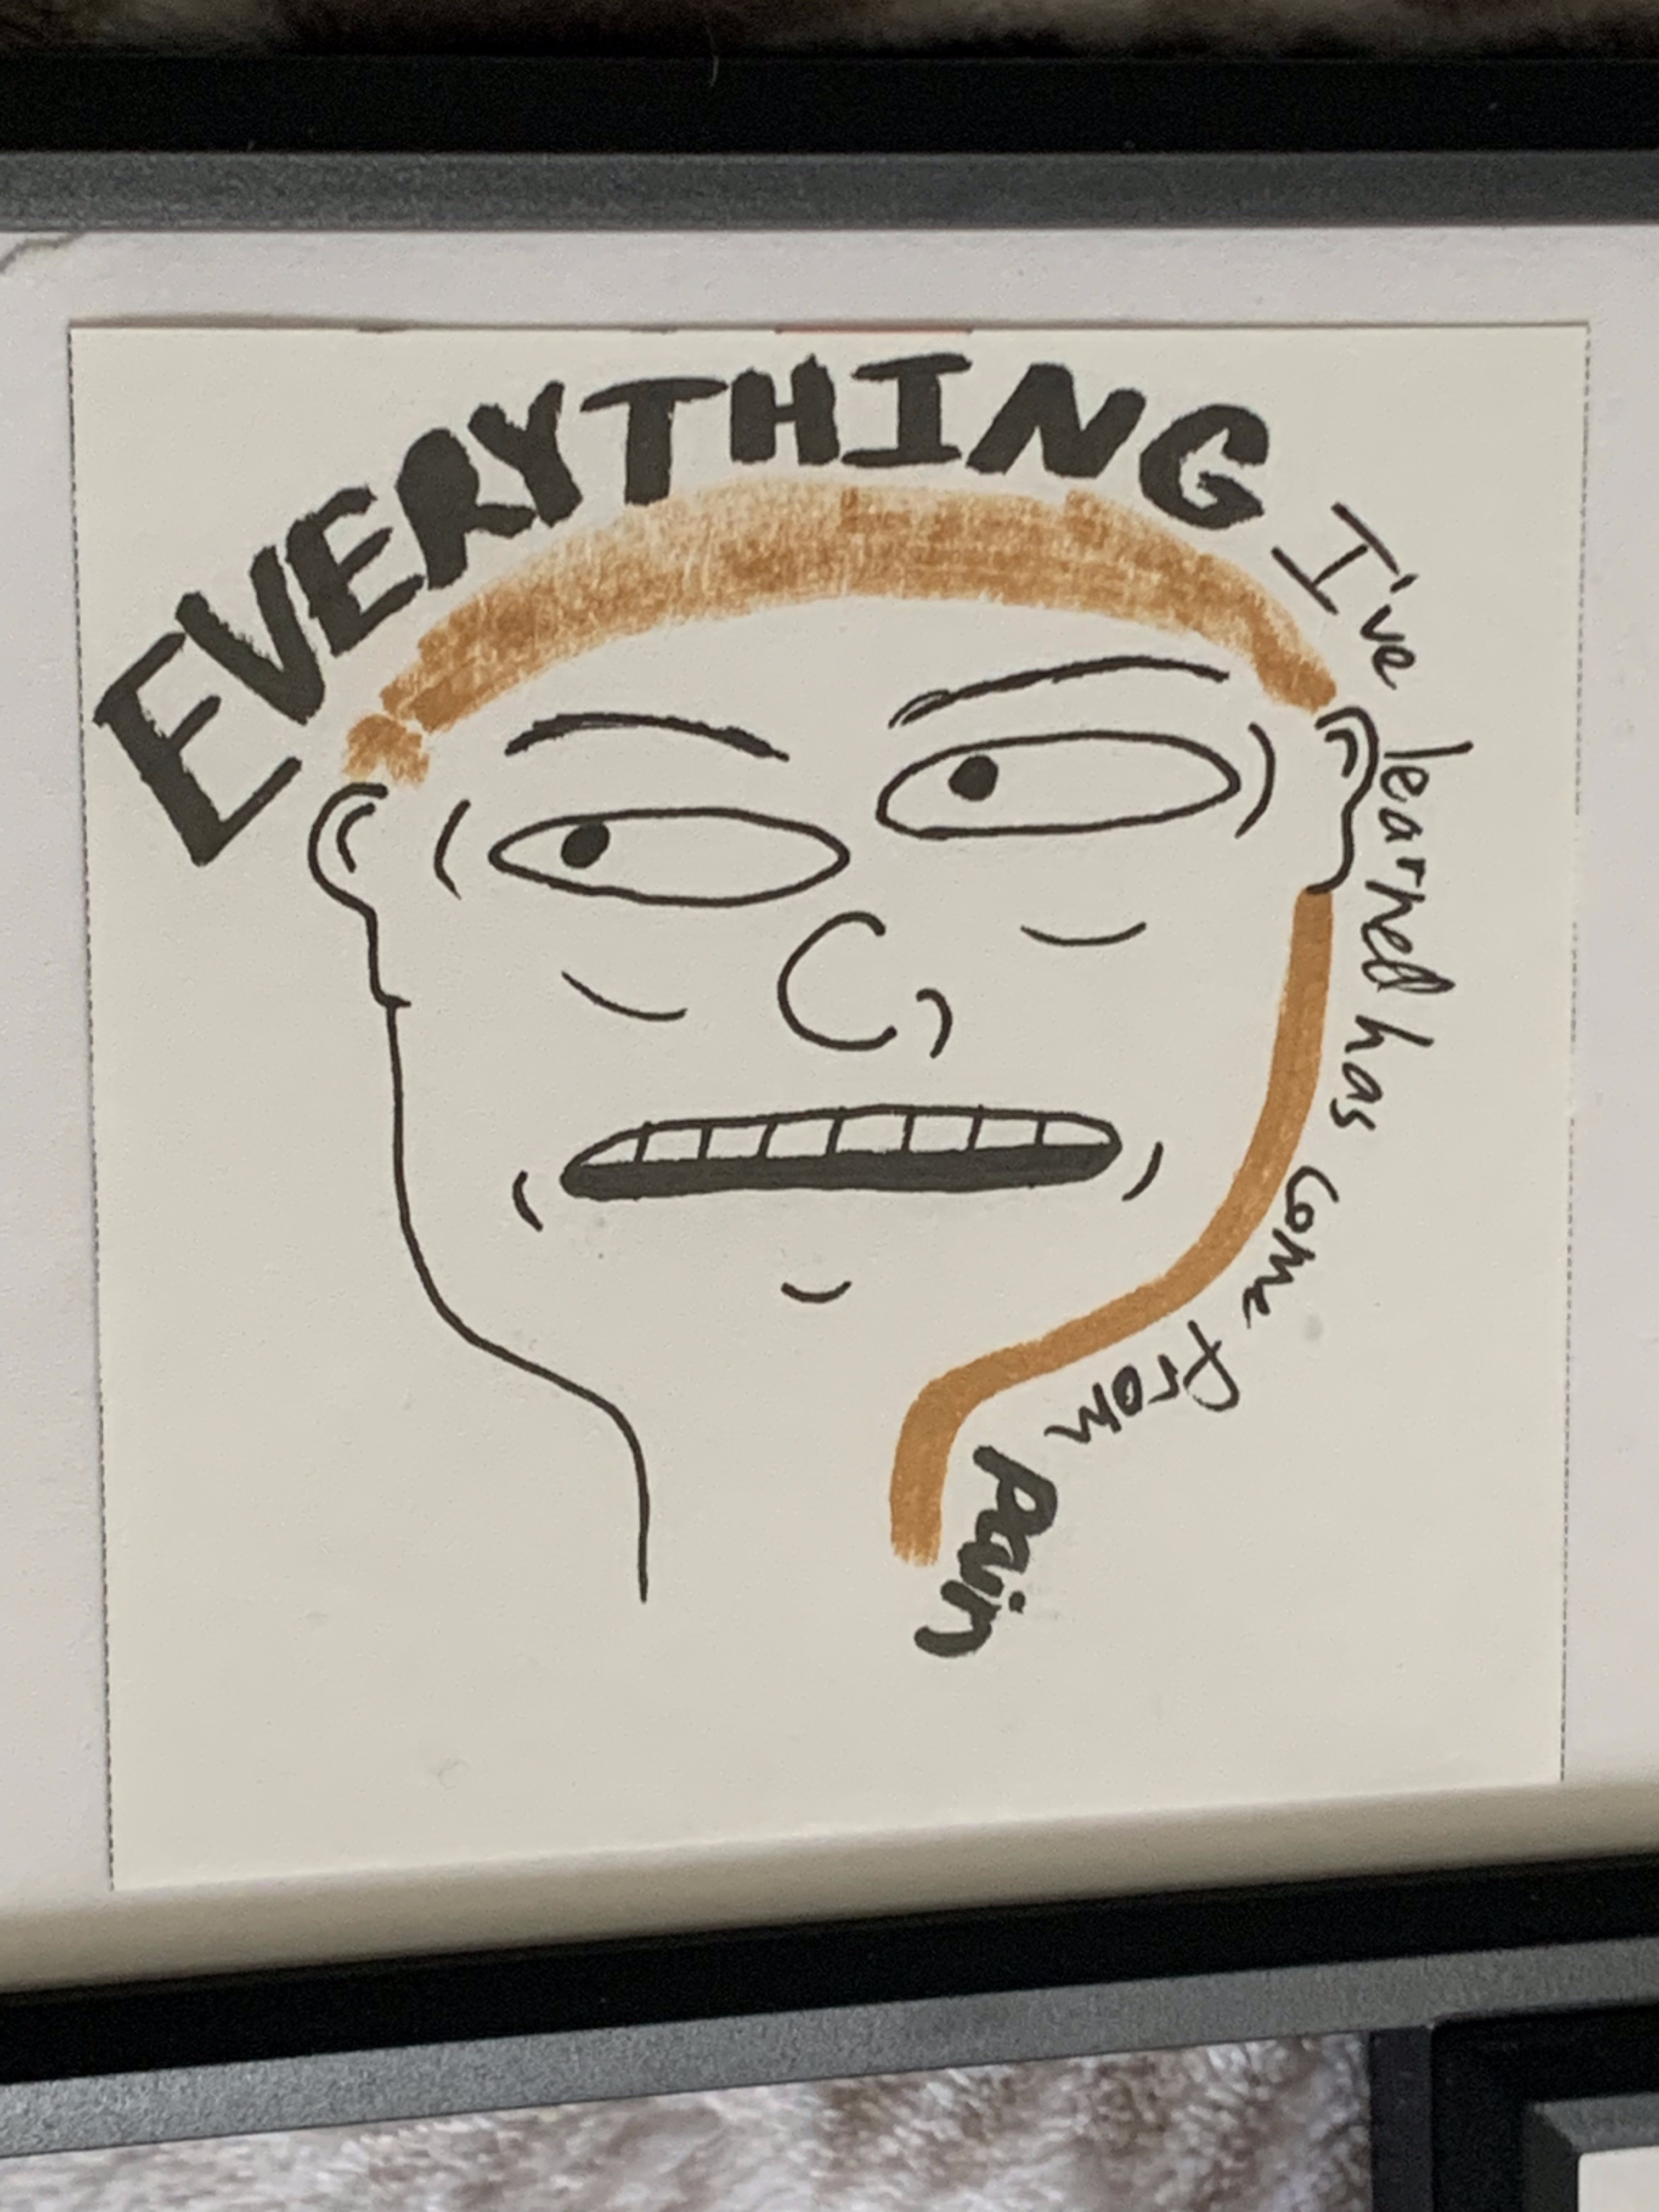 EVERYTHING I've learned has come from pain